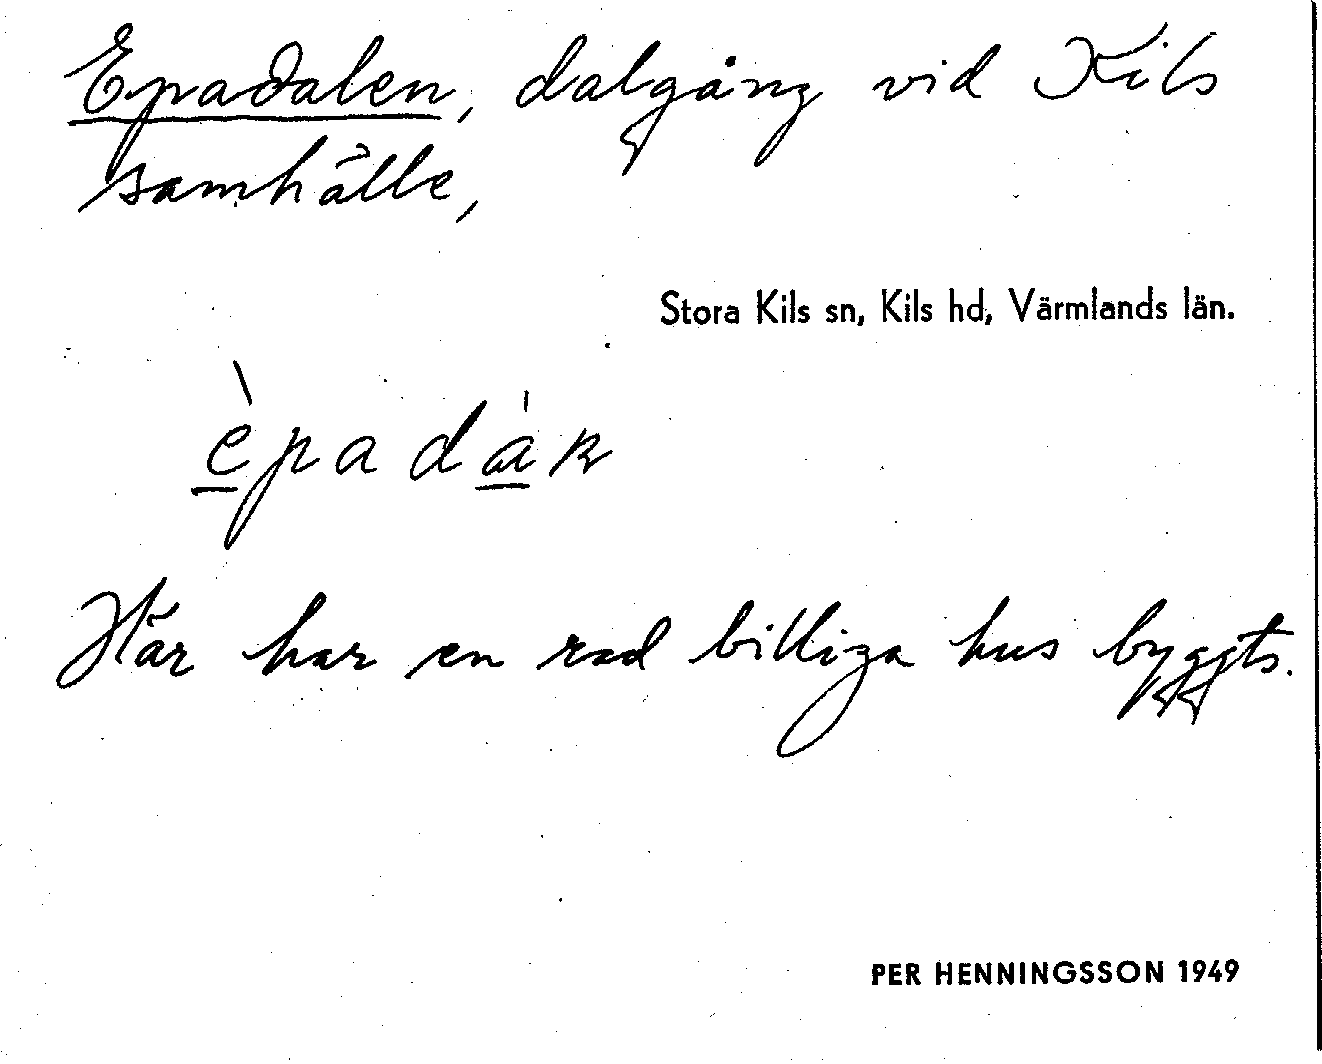 Epadalen, dalgång vid Kils
samhälle,
Stora Kils sn, Kils hd, Värmlands län.
Här har en rad billiga hus byggts.
PER HENNINGSSON 1949